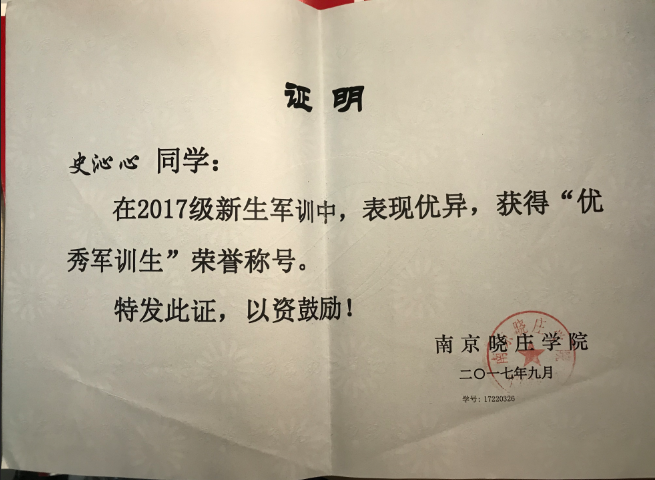 证明
史沁心 同学：
在2017级新生军训中，表现优异，获得“优
秀军训生”荣誉称号。
特发此证，以资鼓励！
南京晓庄学院
二〇一七年九月
学号：17220326